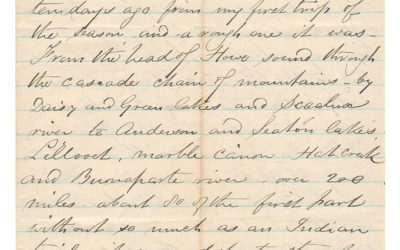 ten days ago from my first trip of
the season and a rough one it was -
From the head of Howe sound through
the cascade chain of mountains - by
Daisy and Green lakes and
river to Anderson and Seaton lakes,
Lillooet, marble cañon Hat creek
and Buonaparte river - over 200
miles about 80 of the first part
without so much as an Indian